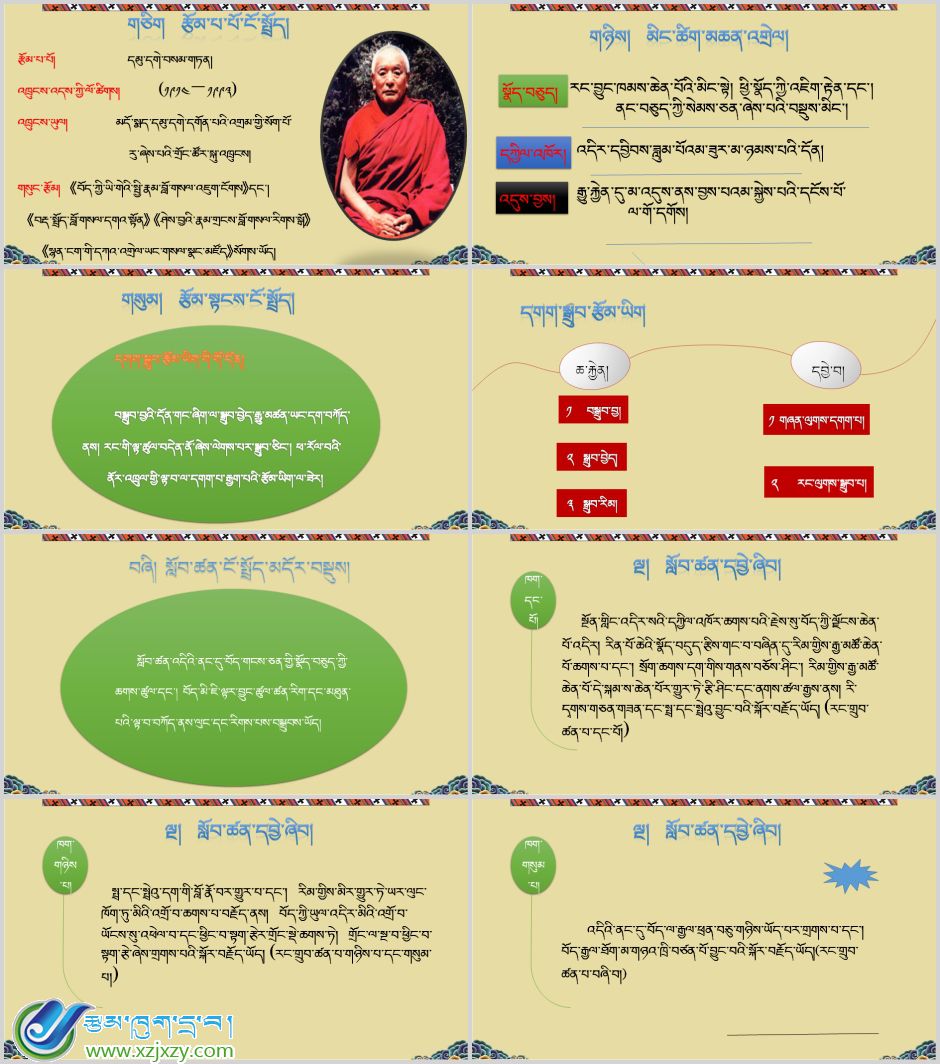 གཅིག རྩོམ་པ་པོ་ངོ་སྤྲོད།
རྩོམ་པ་པོ། དམུ་དགེ་བསམ་གཏན།
འཁྲུངས་འདས་ཀྱི་ལོ་ཚིགས། (༡༩༡༤—༡༩༩༣)
འཁྲུངས་ཡུལ། མདོ་སྨད་དམུ་དགེ་དགོན་པའི་འགྲམ་གྱི་སོག་པོ་
རུ་ཞེས་པའི་གྲོང་ཚོར་སྐུ་འཁྲུངས།
གསུང་རྩོམ། 《བོད་ཀྱི་ཡི་གེའི་སྤྱི་རྣམ་བློ་གསལ་འཇུག་ངོགས》དང་།
《བརྡ་སྤྲོད་བློ་གསལ་དགའ་སྟོན》《ཤེས་བྱའི་རྣམ་གྲངས་བློ་གསལ་རིགས་སྒོ》
《སྙན་ངག་གི་དཀའ་འགྲེལ་ཡང་གསལ་སྣང་མཛོད》སོགས་ཡོད།
གཉིས། མིང་ཚིག་མཆན་འགྲེལ།
སྣོད་བཅུད། རང་བྱུང་ཁམས་ཆེན་པོའི་མིང་སྟེ། ཕྱི་སྣོད་ཀྱི་འཇིག་རྟེན་དང་།
ནང་བཅུད་ཀྱི་སེམས་ཅན་ཞེས་པའི་བསྡུས་མིང་།
དཀྱིལ་འཁོར། འདིར་དབྱིབས་ཟླུམ་པོའམ་ཟུར་མ་ཉམས་པའི་དོན།
འདུས་བྱས། རྒྱུ་རྐྱེན་དུ་མ་འདུས་ནས་བྱས་པའམ་སྐྱེས་པའི་དངོས་པོ་
ལ་གོ་དགོས།
གསུམ། རྩོམ་སྟངས་ངོ་སྤྲོད།
དགག་སྒྲུབ་རྩོམ་ཡིག་གི་གོ་དོན།
བསྒྲུབ་བྱའི་དོན་གང་ཞིག་ལ་སྒྲུབ་བྱེད་རྒྱུ་མཚན་ཡང་དག་བཀོད་
ནས། རང་གི་ལྟ་ཚུལ་བདེན་ནོ་ཞེས་ལེགས་པར་སྒྲུབ་ཅིང་། ཕ་རོལ་བའི་
ནོར་འཁྲུལ་གྱི་ལྟ་བ་ལ་དགག་པ་རྒྱག་པའི་རྩོམ་ཡིག་ལ་ཟེར།
དགག་སྒྲུབ་རྩོམ་ཡིག
ཆ་རྐྱེན། དབྱེ་བ།
༡ བསྒྲུབ་བྱ། ༡ གཞན་ལུགས་དགག་པ།
༢ སྒྲུབ་བྱེད།
༢ རང་ལུགས་སྒྲུབ་པ།
༣ སྒྲུབ་རིམ།
བཞི། སློབ་ཚན་ངོ་སྤྲོད་མདོར་བསྡུས།
སློབ་ཚན་འདིའི་ནང་དུ་བོད་གངས་ཅན་གྱི་སྣོད་བཅུད་ཀྱི་
ཆགས་ཚུལ་དང་། བོད་མི་ཇི་ལྟར་བྱུང་ཚུལ་ཚན་རིག་དང་མཐུན་
པའི་ལྟ་བ་བཀོད་ནས་ལུང་དང་རིགས་པས་བསྒྲུབས་ཡོད།
ལྔ། སློབ་ཚན་དབྱེ་ཞིབ།
ཁག་
དང་
པོ།
སྔོན་གླིང་འདིར་སའི་དཀྱིལ་འཁོར་ཆགས་པའི་རྗེས་སུ་བོད་ཀྱི་ལྗོངས་ཆེན་
པོ་འདིར། རིན་པོ་ཆེའི་སྣོད་བདུད་རྩིས་གང་བ་བཞིན་དུ་རིམ་གྱིས་རྒྱ་མཚོ་ཆེན་
པོ་ཆགས་པ་དང་། སྲོག་ཆགས་དག་གིས་གནས་བཅོས་ཤིང་། རིམ་གྱིས་རྒྱ་མཚོ་
ཆེན་པོ་དེ་སྐམ་ས་ཆེན་པོར་གྱུར་ཏེ་རྩི་ཤིང་དང་ནགས་ཚལ་རྒྱས་ནས། རི་
དྭགས་གཅན་གཟན་དང་སྤྲ་དང་སྤྲེའུ་བྱུང་བའི་སྐོར་བརྗོད་ཡོད། (རང་གྲུབ་
ཚན་པ་དང་པོ།)
ལྔ། སློབ་ཚན་དབྱེ་ཞིབ།
ཁག་
གཉིས
་པ།
སྤྲ་དང་སྤྲེའུ་དག་གི་བློ་རྣོ་བར་གྱུར་པ་དང་། རིམ་གྱིས་མིར་གྱུར་ཏེ་ཡར་ལུང་
ཁོག་ཏུ་མིའི་འགྲོ་བ་ཆགས་པ་བརྗོད་ནས། བོད་ཀྱི་ཡུལ་འདིར་མིའི་འགྲོ་བ་
ཡོངས་སུ་འཕེལ་བ་དང་ཕྱིང་བ་སྟག་རྩེར་གྲོང་སྡེ་ཆགས་ཏེ། གྲོང་ལ་སྔ་བ་ཕྱིང་བ་
སྟག་རྩེ་ཞེས་གྲགས་པའི་སྐོར་བརྗོད་ཡོད། (རང་གྲུབ་ཚན་པ་གཉིས་པ་དང་གསུམ་
པ།)
ལྔ། སློབ་ཚན་དབྱེ་ཞིབ།
ཁག་
གསུམ
་པ།
འདིའི་ནང་དུ་བོད་ལ་རྒྱལ་ཕྲན་བཅུ་གཉིས་ཡོད་པར་གྲགས་པ་དང་།
བོད་རྒྱལ་ཐོག་མ་གཉའ་ཁྲི་བཙན་པོ་བྱུང་བའི་སྐོར་བརྗོད་ཡོད།(རང་གྲུབ་
ཚན་པ་བཞི་བ།)
རྩམ་ཁུག་དྲ་བ།
www.xzjxzy.com